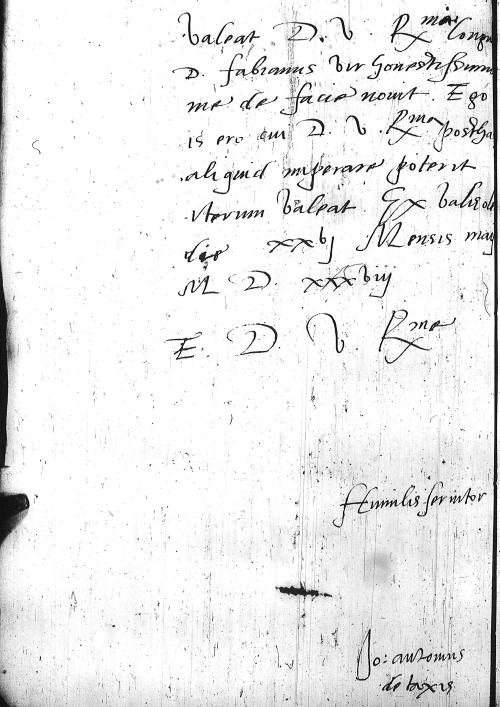 Valeat D. V. Rma
D. fabianus vir honestissimus
me de facie novit. Ego
is ero cui D. V. Rme postha
aliquid imperare poterit
iterum Valeat. Ex Valisole
die xxvj Mensis maij
M D. xxxviij
E. D. V. Rme
Humilis servitor
Jo: antonius
de taxis